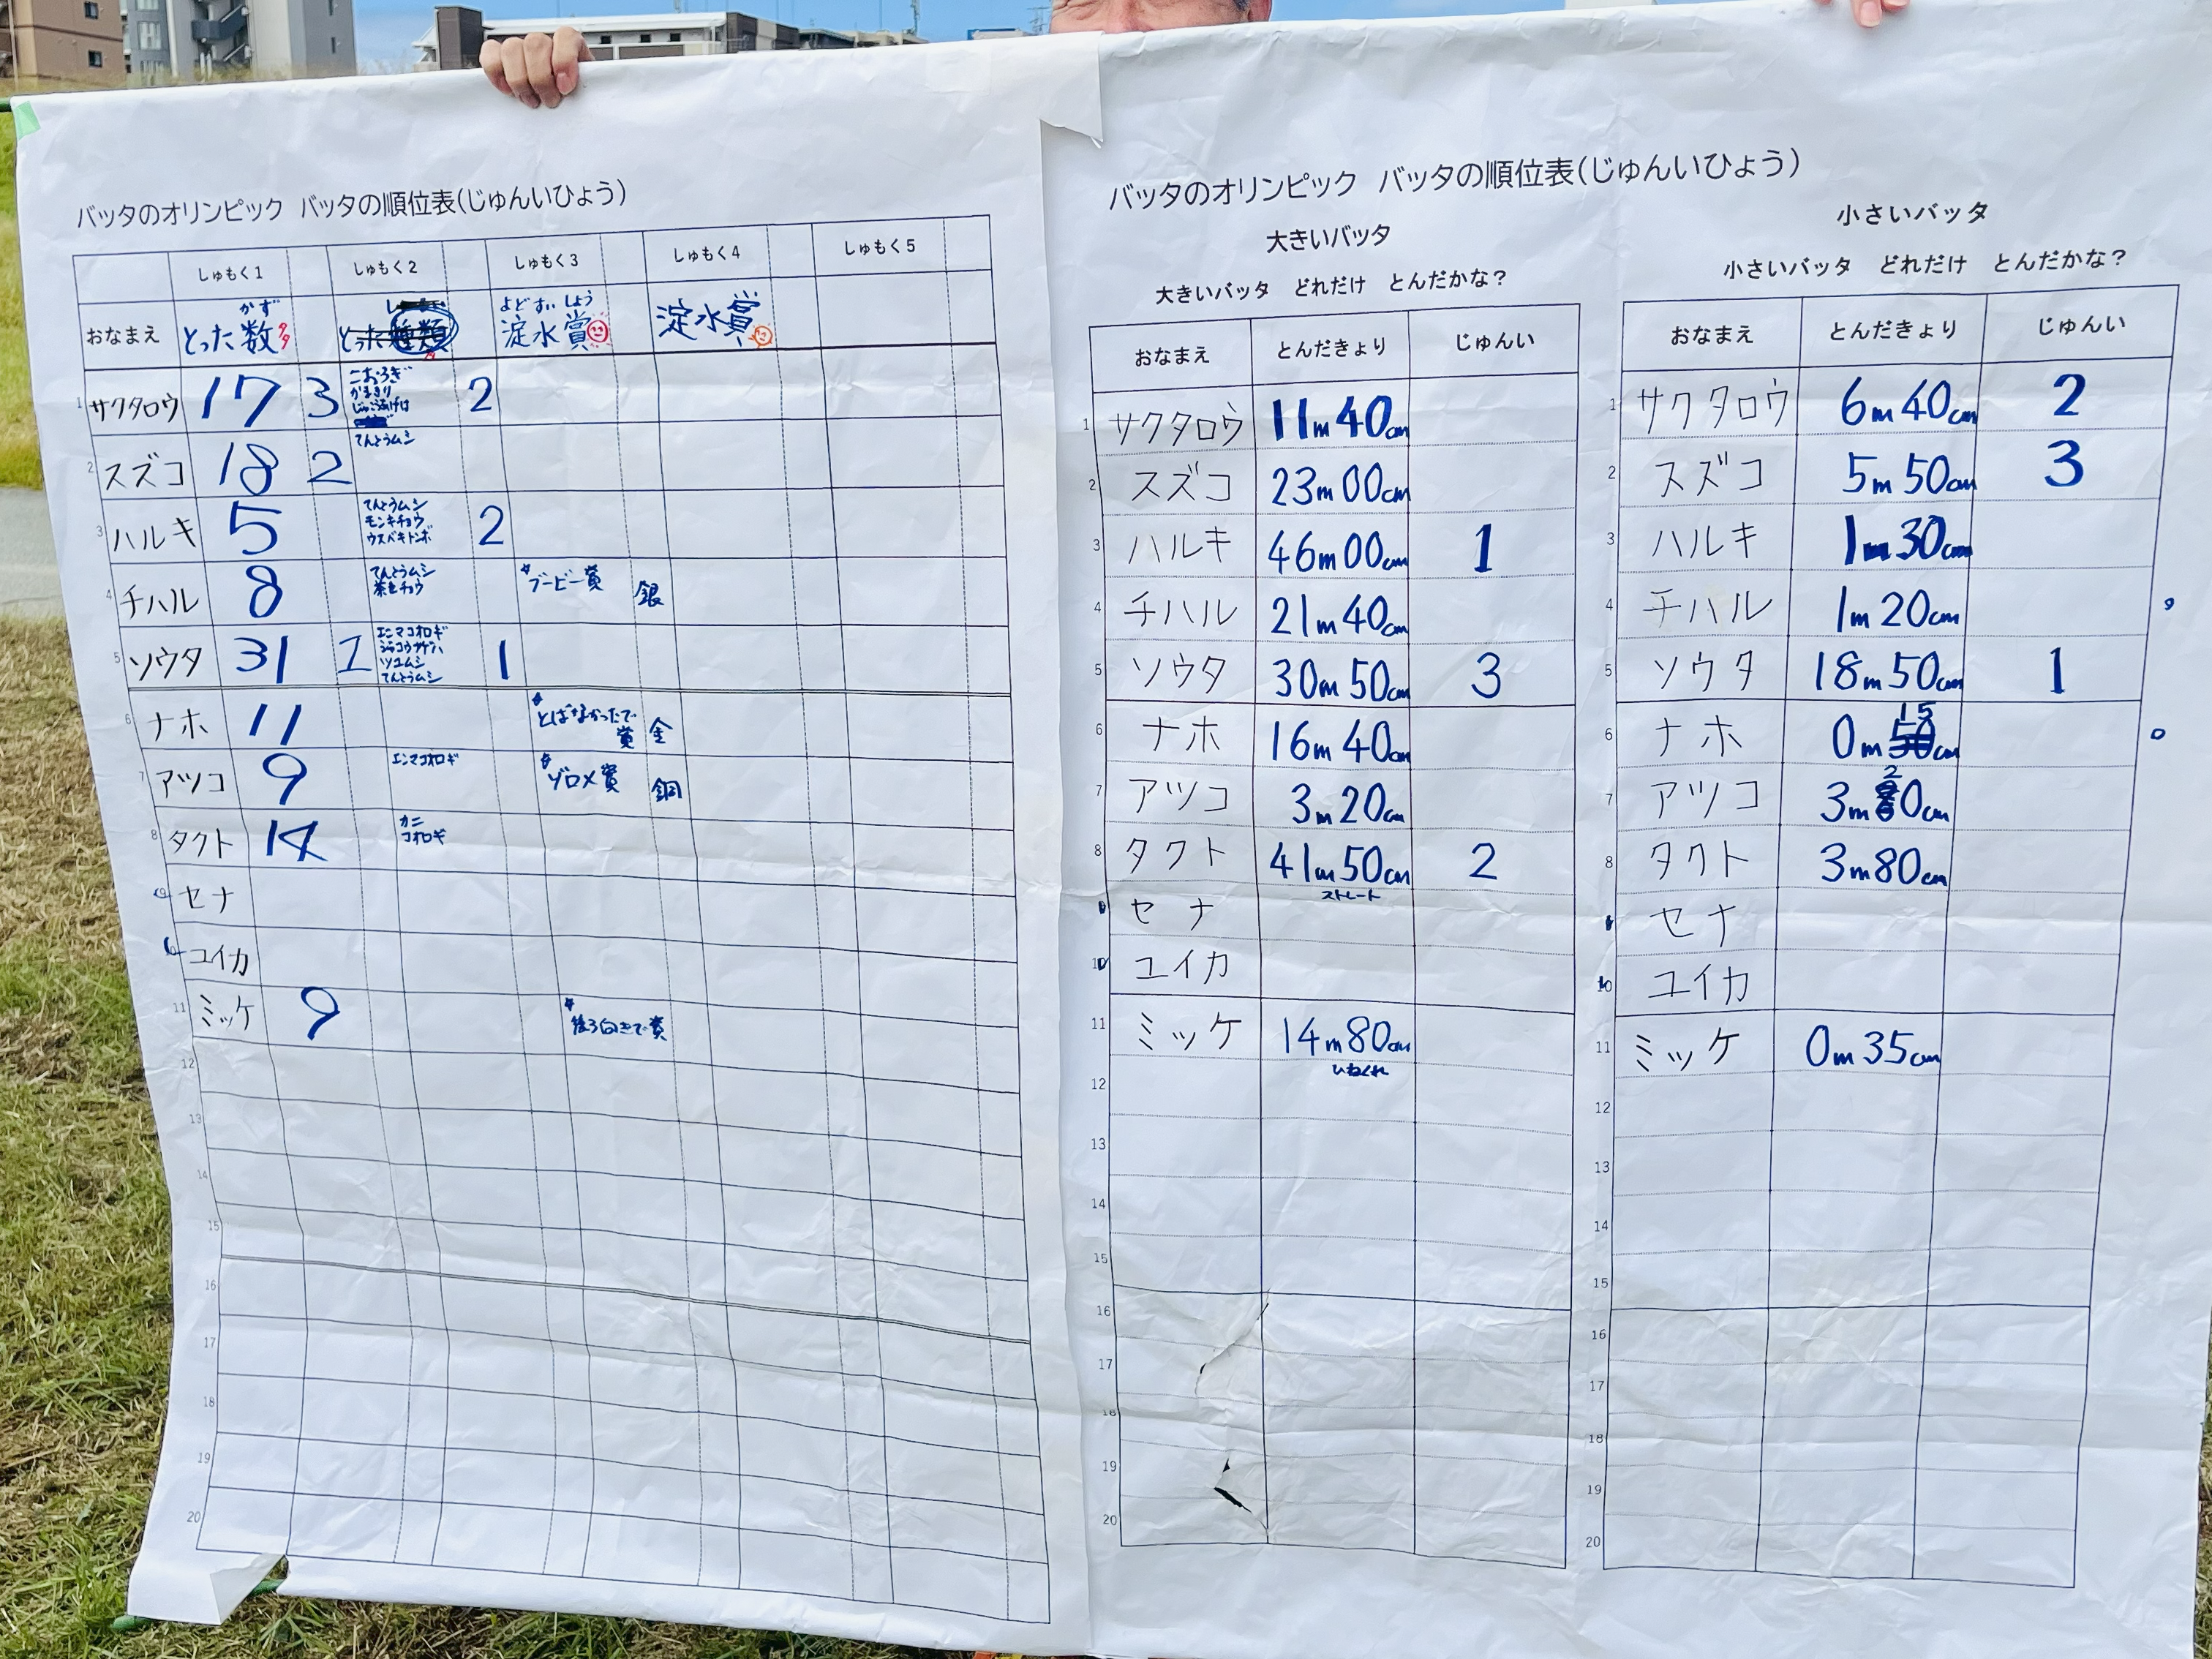 バッタのオリンピック バッタの順位表(じゅんいひょう)
しゅもく1 しゅもく2 しゅもく3 しゅもく4 しゅもく5
おなまえ
かず
とった数
とった種類
よどすいしょう
淀水賞
淀水賞
1 サクタロウ 17 3
こおろぎ
かまきり
じゃこうあげは
2
2 スズコ 18 2 てんとうムシ
3 ハルキ 5
てんとうムシ
モンキチョウ
ウスバキトンボ
2
4 チハル 8
てんとうムシ
茶色チョウ
ブービー賞 銀
5 ソウタ 31 1
エンマコオロギ
ジャコウアゲハ
ツユムシ
てんとうムシ
1
6 ナホ 11
とばなかったで
賞 金
7 アツコ 9 エンマコオロギ ゾロメ賞 銅
8 タクト 14
カニ
コオロギ
セナ
ユイカ
11 ミッケ 9 後ろ向きで賞
12
13
14
15
16
17
18
19
20
バッタのオリンピック バッタの順位表(じゅんいひょう)
大きいバッタ
大きいバッタ どれだけ とんだかな?
おなまえ とんだきょり じゅんい
1 サクタロウ 11m 40cm
2 スズコ 23m 00cm
3 ハルキ 46m 00cm 1
4 チハル 21m 40cm
5 ソウタ 30m 50cm 3
6 ナホ 16m 40cm
7 アツコ 3m 20cm
8 タクト 41m 50cm 2
ストレート
セナ
10 ユイカ
11 ミッケ 14m 80cm
ひねくれ
12
13
14
15
16
17
18
19
20
小さいバッタ
小さいバッタ どれだけ とんだかな?
おなまえ とんだきょり じゅんい
1 サクタロウ 6m 40cm 2
2 スズコ 5m 50cm 3
3 ハルキ 1m 30cm
4 チハル 1m 20cm
5 ソウタ 18m 50cm 1
6 ナホ 0m 15cm
7 アツコ 3m 20cm
8 タクト 3m 80cm
セナ
10 ユイカ
11 ミッケ 0m 35cm
12
13
14
15
16
17
18
19
20